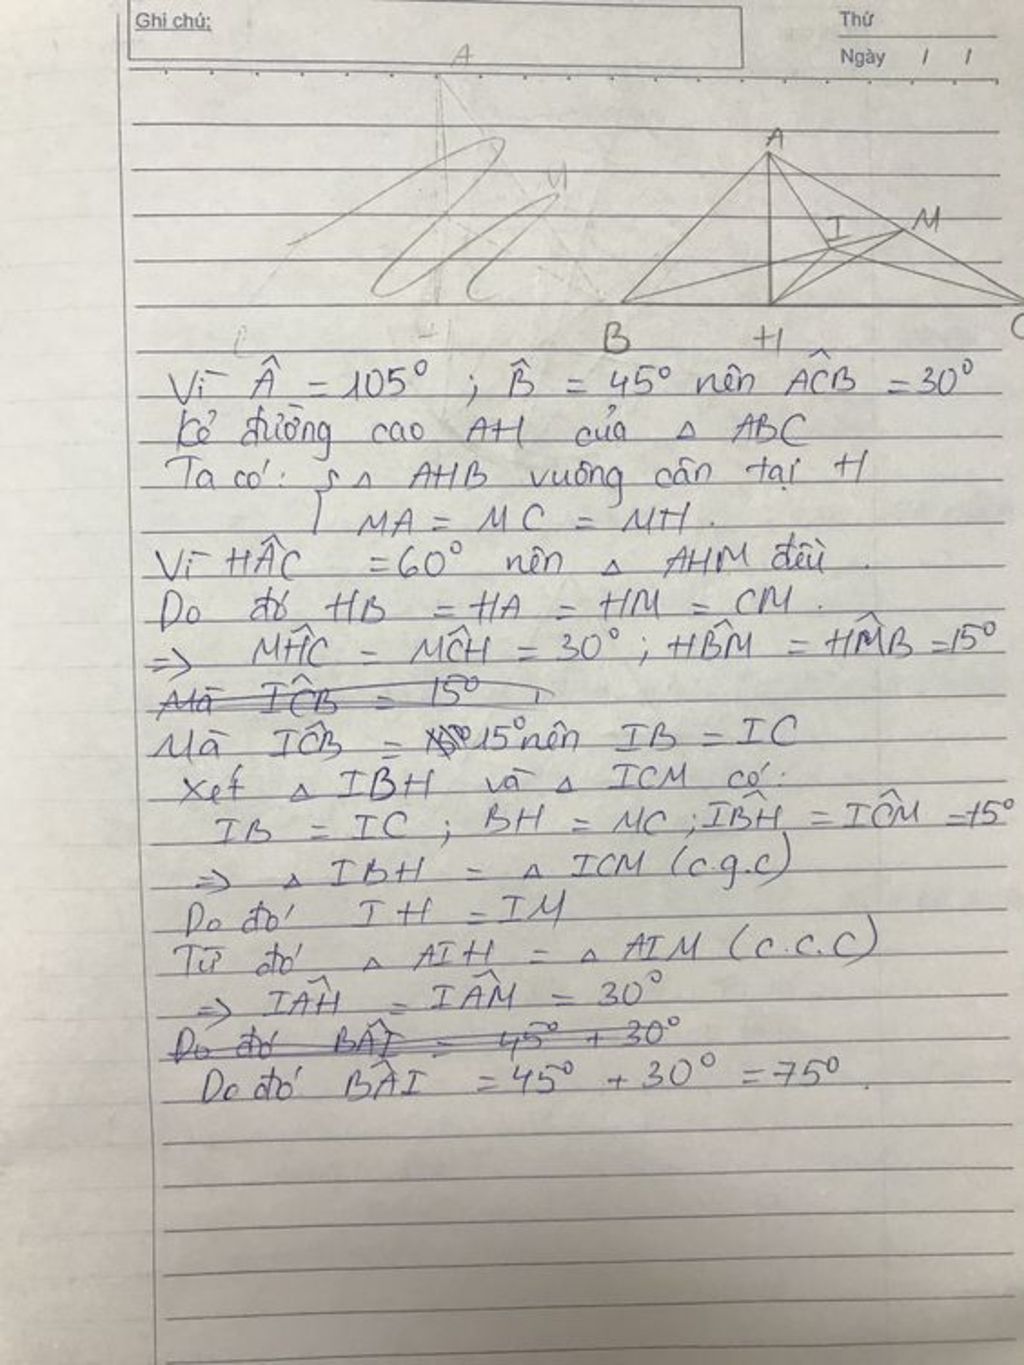 Ghi chú:
Thứ
Ngày / /
A
M
A
I
M
B
H
C
Vì Â = 105° ; B̂ = 45° nên AĈB = 30°
Kẻ đường cao AH của △ ABC
Ta có: { △ AHB vuông cân tại H
MA = MC = MH.
Vì HÂC = 60° nên △ AHM đều.
Do đó HB = HA = HM = CM.
=> MĤC = MĈH = 30° ; HB̂M = HM̂B = 15°
Mà IĈB = 15°
Mà IĈB = 15° nên IB = IC
Xét △ IBH và △ ICM có:
IB = IC ; BH = MC ; IB̂H = IĈM = 15°
=> △ IBH = △ ICM (c.g.c)
Do đó IH = IM
Từ đó △ AIH = △ AIM (c.c.c)
=> IÂH = IÂM = 30°
Do đó BÂI = 45° + 30°
Do đó BÂI = 45° + 30° = 75°.